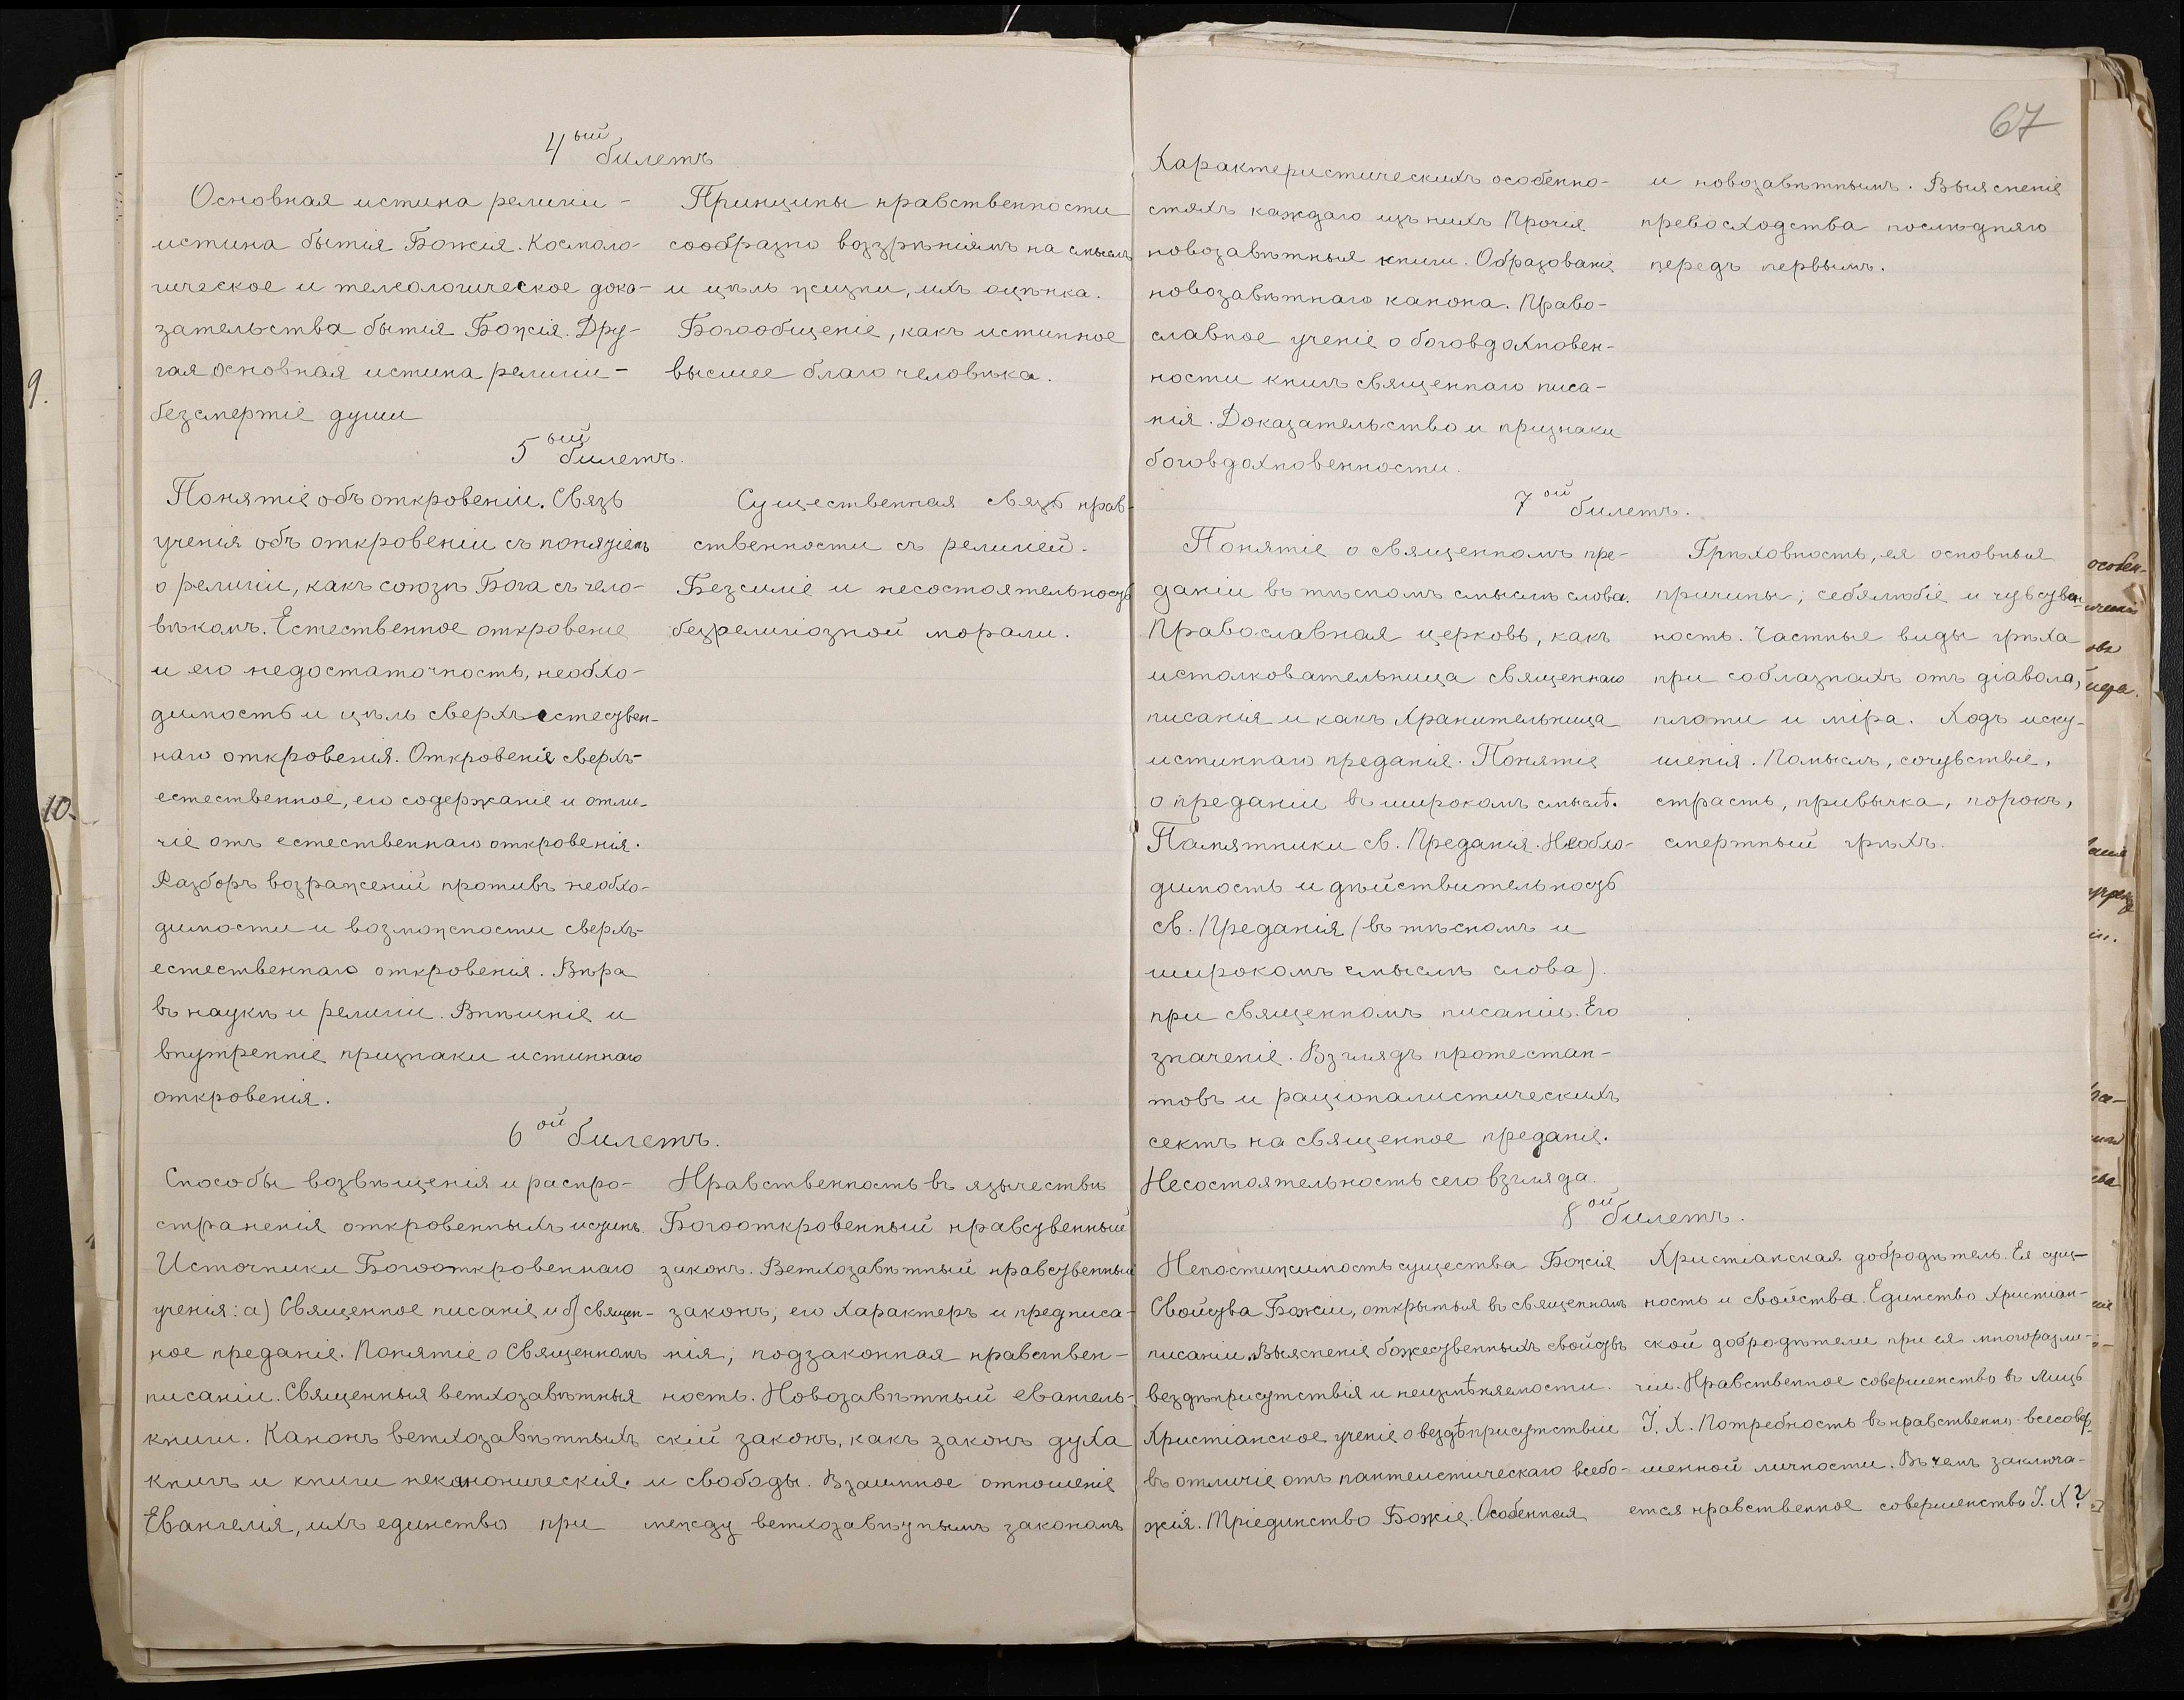 4ый билетъ
Основная истина религіи –
истина бытія Божія. Космоло-
гическое и телеологическое дока-
зательства бытія Божія. Дру-
гая основная истина религіи –
безсмертіе души
Принципы нравственности
сообразно воззрѣніямъ на смыслъ
и цѣль жизни, ихъ оцѣнка.
Богообщеніе, какъ истинное
высшее благо человѣка.
5ый билетъ.
Понятіе объ откровеніи. Связь
ученія объ откровеніи съ понятіемъ
о религіи, какъ союзѣ Бога съ чело-
вѣкомъ. Естественное откровеніе
и его недостаточность, необхо-
димость и цѣль сверхъестествен-
наго откровенія. Откровеніе сверхъ-
естественное, его содержаніе и отли-
чіе отъ естественнаго откровенія.
Разборъ возраженій противъ необхо-
димости и возможности сверхъ-
естественнаго откровенія. Вѣра
въ наукѣ и религіи. Внѣшніе и
внутренніе признаки истиннаго
откровенія.
Существенная связь нрав-
ственности съ религіей.
Безсиліе и несостоятельность
безрелигіозной морали.
6ой билетъ.
Способы возвѣщенія и распро-
страненія откровенныхъ истинъ.
Источники Богооткровеннаго
ученія: а) Священное писаніе и б) священ-
ное преданіе. Понятіе о Священномъ
писаніи. Священныя ветхозавѣтныя
книги. Канонъ ветхозавѣтныхъ
книгъ и книги неканоническія.
Евангелія, ихъ единство при
Нравственность въ язычествѣ
Богооткровенный нравственный
законъ. Ветхозавѣтный нравственный
законъ, его характеръ и предписа-
нія; подзаконная нравствен-
ность. Новозавѣтный евангель-
скій законъ, какъ законъ духа
и свободы. Взаимное отношеніе
между ветхозавѣтнымъ закономъ
67
характеристическихъ особенно-
стяхъ каждаго изъ нихъ Прочія
новозавѣтныя книги. Образованіе
новозавѣтнаго канона. Право-
славное ученіе о боговдохновен-
ности книгъ священнаго писа-
нія. Доказательство и признаки
боговдохновенности.
и новозавѣтнымъ. Выясненіе
превосходства послѣдняго
передъ первымъ.
7ой билетъ.
Понятіе о священномъ пре-
даніи въ тѣсномъ смыслѣ слова.
Православная церковь, какъ
истолковательница священнаго
писанія и какъ хранительница
истиннаго преданія. Понятіе
о преданіи въ широкомъ смыслѣ.
Памятники св. Преданія. Необхо-
димость и дѣйствительность
св. Преданія (въ тѣсномъ и
широкомъ смыслѣ слова).
при священномъ писаніи. Его
значеніе. Взглядъ протестан-
товъ и раціоналистическихъ
сектъ на священное преданіе.
Несостоятельность сего взгляда.
Грѣховность, ея основныя
причины; себялюбіе и чувствен-
ность. Частные виды грѣха
при соблазнахъ отъ діавола,
плоти и міра. Ходъ иску-
шенія. Помыслъ, сочувствіе,
страсть, привычка, порокъ,
смертный грѣхъ.
8ой билетъ.
Непостижимость существа Божія
Свойства Божіи, открытыя въ священномъ
писаніи. Выясненіе божественныхъ свойствъ
вездѣприсутствія и неизмѣняемости.
Христіанское ученіе о вездѣприсутствіи
въ отличіе отъ пантеистическаго всебо-
жія. Тріединство Божіе. Особенная
Христіанская добродѣтель. Ея сущ-
ность и свойства. Единство христіан-
ской добродѣтели при ея многоразли-
чіи. Нравственное совершенство въ лицѣ
І. Х. Потребность въ нравственно-всесовер-
шенной личности. Въ чемъ заключа-
ется нравственное совершенство І. Х?
9.
10.
особен-